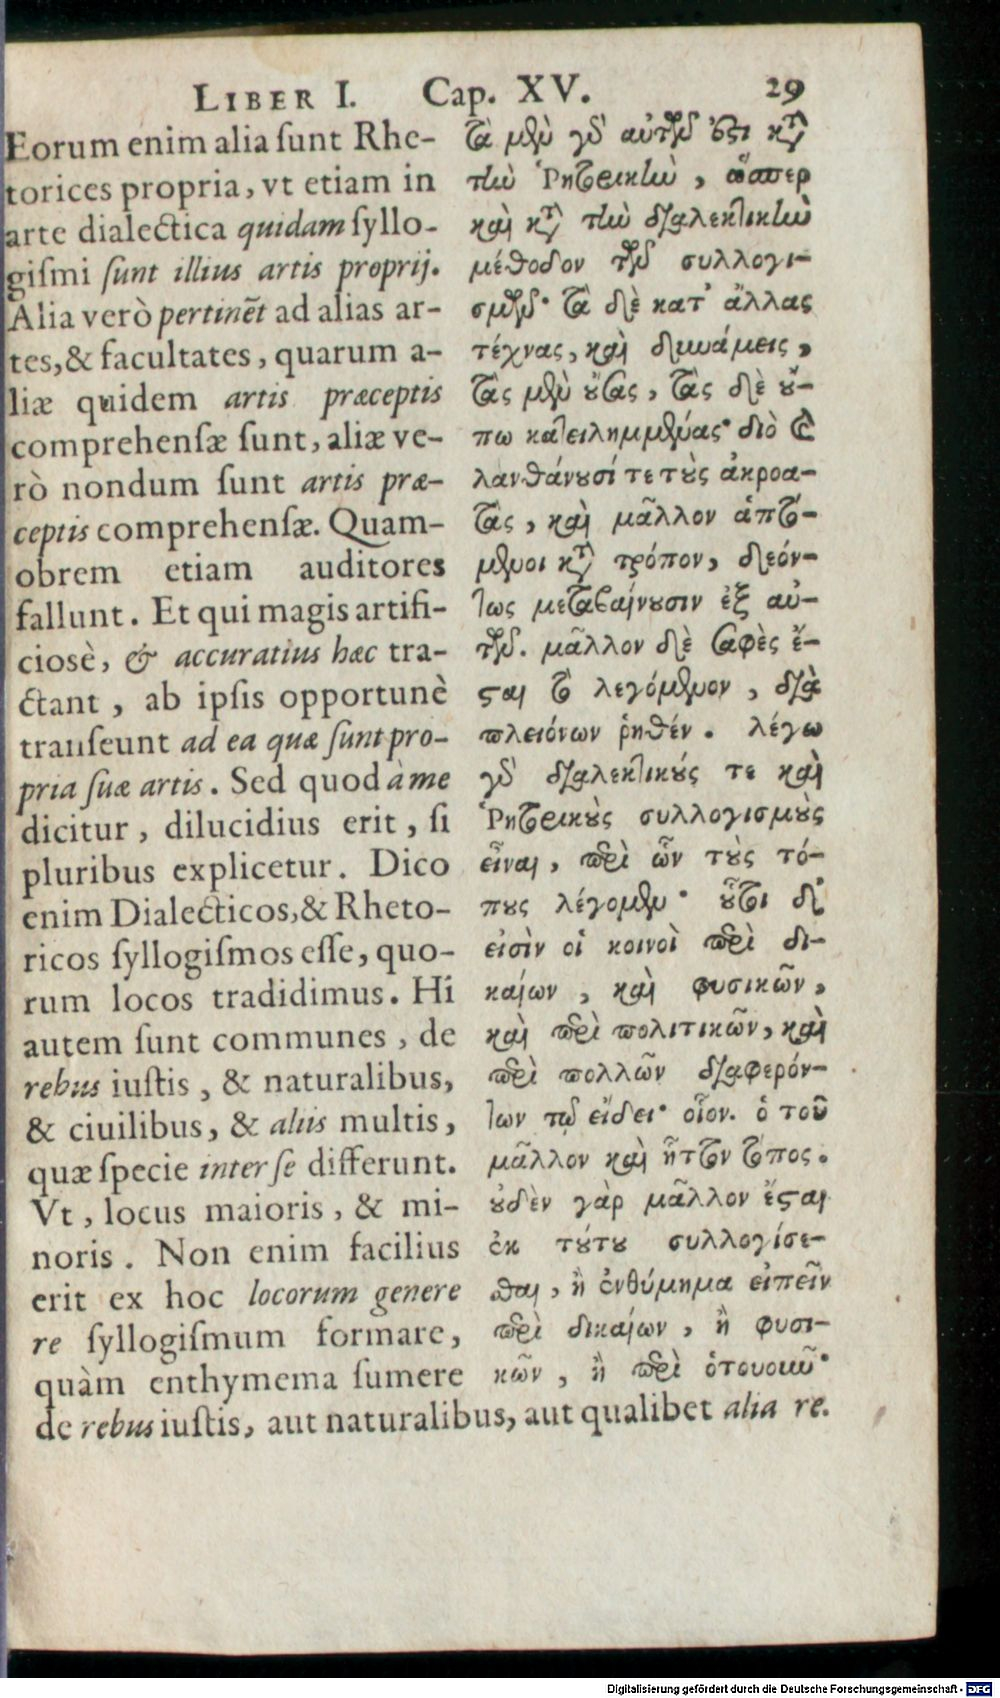 LIBER I. Cap. XV. 29
Eorum enim alia sunt Rhe-
torices propria, vt etiam in
arte dialectica quidam syllo-
gismi sunt illius artis proprij.
Alia verò pertinēt ad alias ar-
tes, & facultates, quarum a-
liæ quidem artis præceptis
comprehensæ sunt, aliæ ve-
rò nondum sunt artis præ-
ceptis comprehensæ. Quam-
obrem etiam auditores
fallunt. Et qui magis artifi-
ciosè, & accuratius hæc tra-
ctant, ab ipsis opportunè
transeunt ad ea quæ sunt pro-
pria suæ artis. Sed quod à me
dicitur, dilucidius erit, si
pluribus explicetur. Dico
enim Dialecticos, & Rheto-
ricos syllogismos esse, quo-
rum locos tradidimus. Hi
autem sunt communes, de
rebus iustis, & naturalibus,
& ciuilibus, & aliis multis,
quæ specie inter se differunt.
Vt, locus maioris, & mi-
noris. Non enim facilius
erit ex hoc locorum genere
re syllogismum formare,
quàm enthymema sumere
de rebus iustis, aut naturalibus, aut qualibet alia re.
τὰ μὲν γὸ αὐτῶν ἔστι κτ͂
τὴν Ῥητορικὴν, ὥσπερ
καὶ κτ͂ τὴν διαλεκτικὴν
μέθοδον τῶν συλλογι-
σμῶν· τὰ δὲ κατ' ἄλλας
τέχνας, καὶ δυνάμεις,
τὰς μὲν οὔσας, τὰς δὲ οὔ-
πω κατειλημμένας· διὸ καὶ
λανθάνουσί τε τοὺς ἀκροα-
τὰς, καὶ μᾶλλον ἁπτό-
μενοι κτ͂ τρόπον, δεόν-
τως μεταβαίνουσιν ἐξ αὐ-
τῶν. μᾶλλον δὲ σαφὲς ἔ-
σται τὸ λεγόμενον, διὰ
πλειόνων ῥηθέν. λέγω
γὸ διαλεκτικούς τε καὶ
Ῥητορικοὺς συλλογισμοὺς
εἶναι, περὶ ὧν τοὺς τό-
πους λέγομεν· οὗτοι δ'
εἰσὶν οἱ κοινοὶ περὶ δι-
καίων, καὶ φυσικῶν,
καὶ περὶ πολιτικῶν, καὶ
περὶ πολλῶν διαφερόν-
των τῷ εἴδει· οἷον. ὁ τοῦ
μᾶλλον καὶ ἧττον τόπος.
οὐδὲν γὰρ μᾶλλον ἔσται
ἐκ τούτου συλλογίσε-
σθαι, ἢ ἐνθύμημα εἰπεῖν
περὶ δικαίων, ἢ φυσι-
κῶν, ἢ περὶ ὁτουοιοῦν·
Digitalisierung gefördert durch die Deutsche Forschungsgemeinschaft - DFG